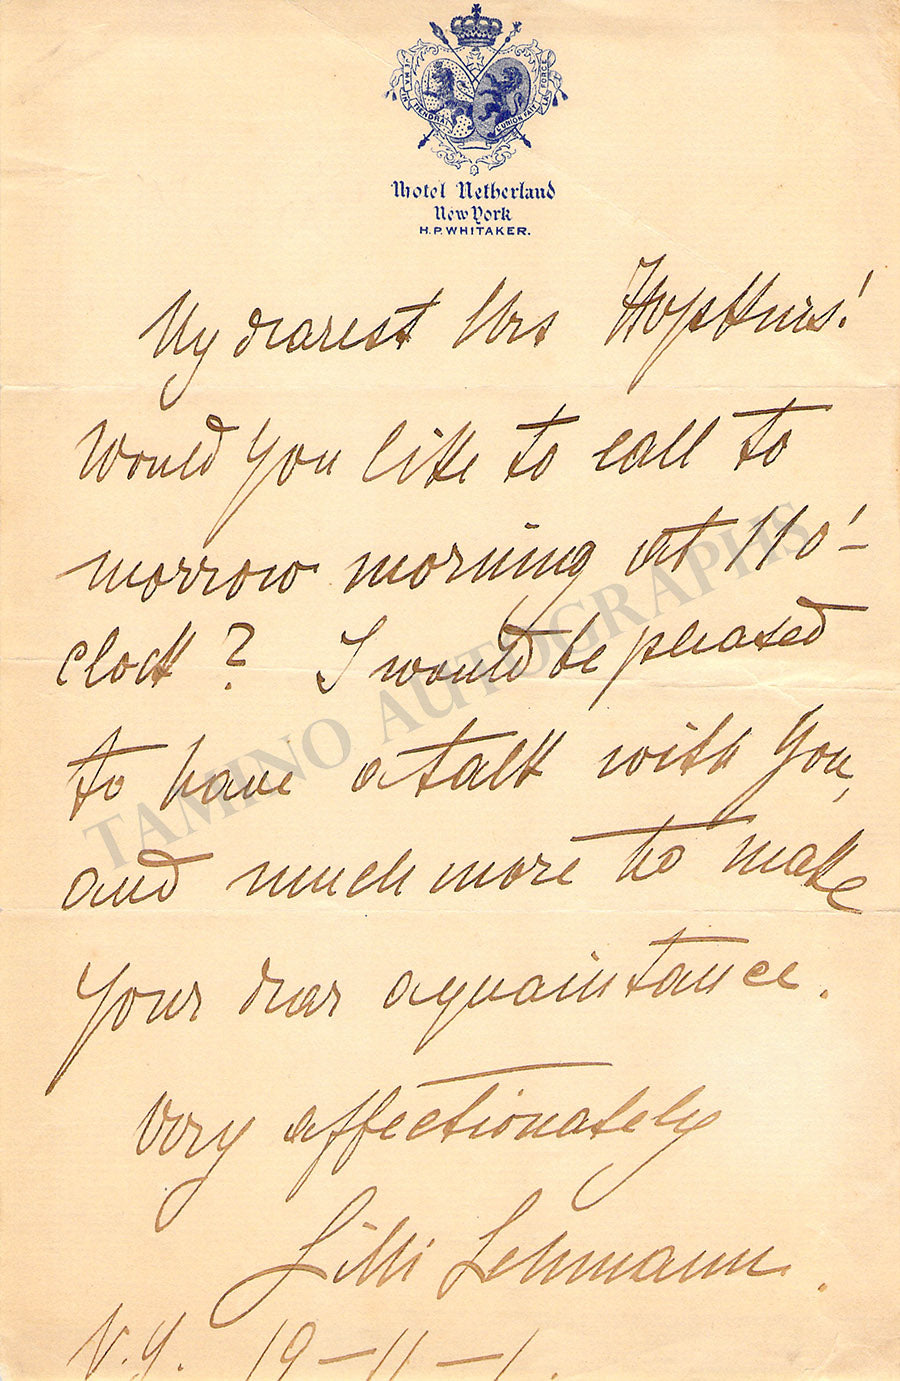 JE MAINTIENDRAI
L'UNION FAIT LA FORCE
Hotel Netherland
New York
H. P. WHITAKER.
My dearest Mrs Hopkins!
Would you like to call to
morrow morning at 11 o'-
clock? I would be pleased
to have a talk with you,
and much more to make
your dear aquaintance.
Very affectionately
Lilli Lehmann.
N.Y. 19-11-1.
TAMINO AUTOGRAPHS